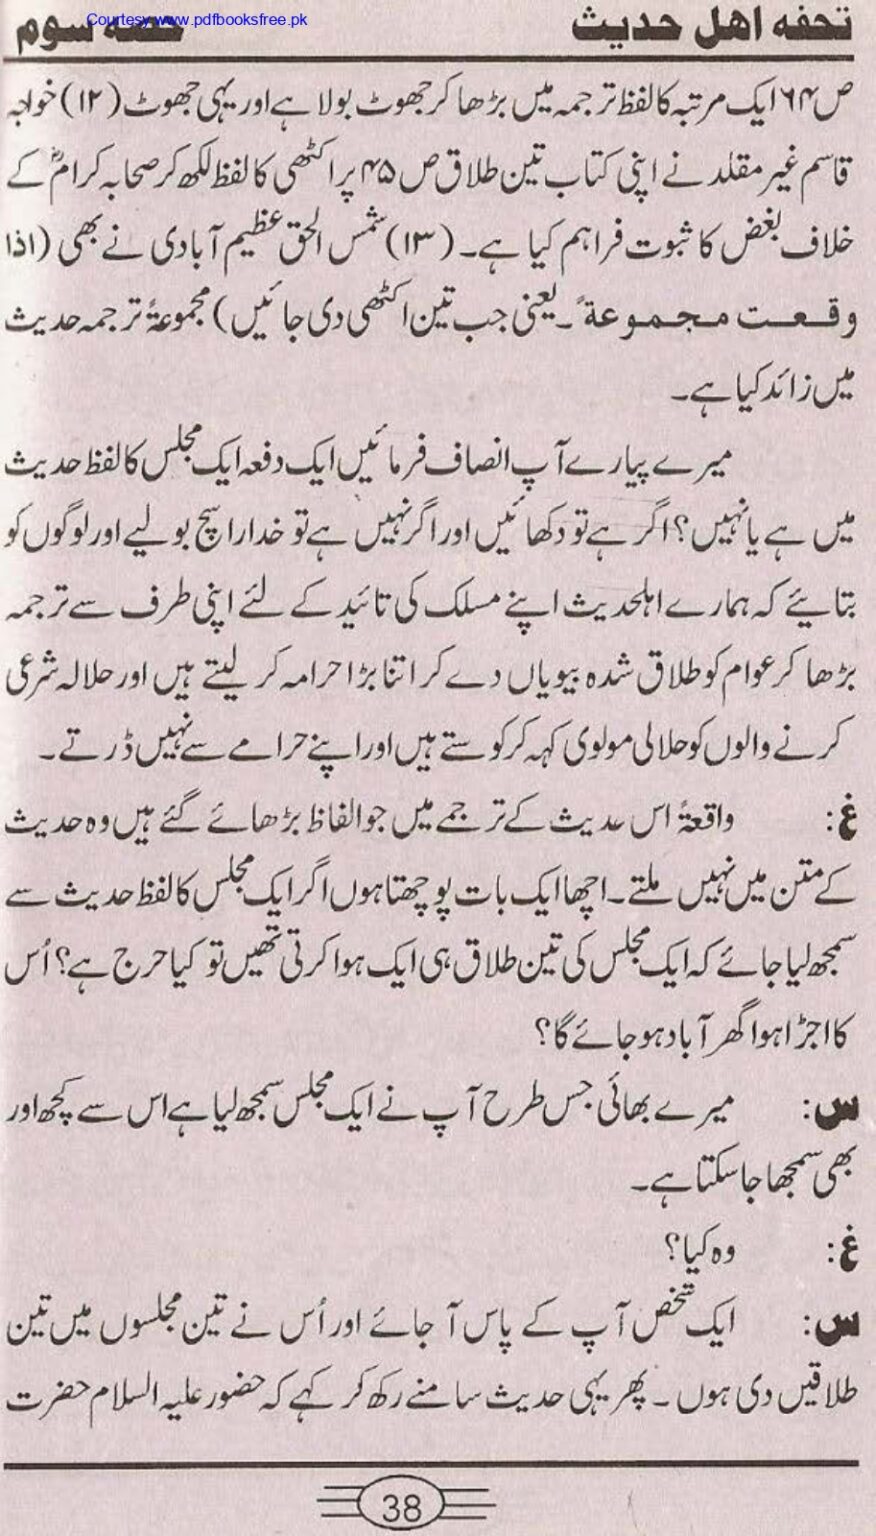 Courtesy www.pdfbooksfree.pk
تحفه اهل حدیث حصه سوم
ص۶۴ ایک مرتبہ کا لفظ ترجمہ میں بڑھا کر جھوٹ بولا ہے اور یہی جھوٹ (۱۲) خواجہ
قاسم غیر مقلد نے اپنی کتاب تین طلاق ص ۴۵ پر اکٹھی کا لفظ لکھ کر صحابہ کرامؓ کے
خلاف بغض کا ثبوت فراہم کیا ہے۔ (۱۳) شمس الحق عظیم آبادی نے بھی (اذا
وقعت مجموعةً۔ یعنی جب تین اکٹھی دی جائیں) مجموعۂ ترجمہ حدیث
میں زائد کیا ہے۔
میرے پیارے آپ انصاف فرمائیں ایک دفعہ ایک مجلس کا لفظ حدیث
میں ہے یا نہیں؟ اگر ہے تو دکھائیں اور اگر نہیں ہے تو خدارا سچ بولیے اور لوگوں کو
بتایئے کہ ہمارے اہلحدیث اپنے مسلک کی تائید کے لئے اپنی طرف سے ترجمہ
بڑھا کر عوام کو طلاق شدہ بیویاں دے کر اتنا بڑا حرامہ کر لیتے ہیں اور حلالہ شرعی
کرنے والوں کو حلالی مولوی کہہ کر کوستے ہیں اور اپنے حرامے سے نہیں ڈرتے۔
غ: واقعۃً اس حدیث کے ترجمے میں جو الفاظ بڑھائے گئے ہیں وہ حدیث
کے متن میں نہیں ملتے۔ اچھا ایک بات پوچھتا ہوں اگر ایک مجلس کا لفظ حدیث سے
سمجھ لیا جائے کہ ایک مجلس کی تین طلاق ہی ایک ہوا کرتی تھیں تو کیا حرج ہے؟ اُس
کا اجڑا ہوا گھر آباد ہو جائے گا؟
س: میرے بھائی جس طرح آپ نے ایک مجلس سمجھ لیا ہے اس سے کچھ اور
بھی سمجھا جا سکتا ہے۔
غ: وہ کیا؟
س: ایک شخص آپ کے پاس آ جائے اور اُس نے تین مجلسوں میں تین
طلاقیں دی ہوں۔ پھر یہی حدیث سامنے رکھ کر کہے کہ حضور علیہ السلام حضرت
38